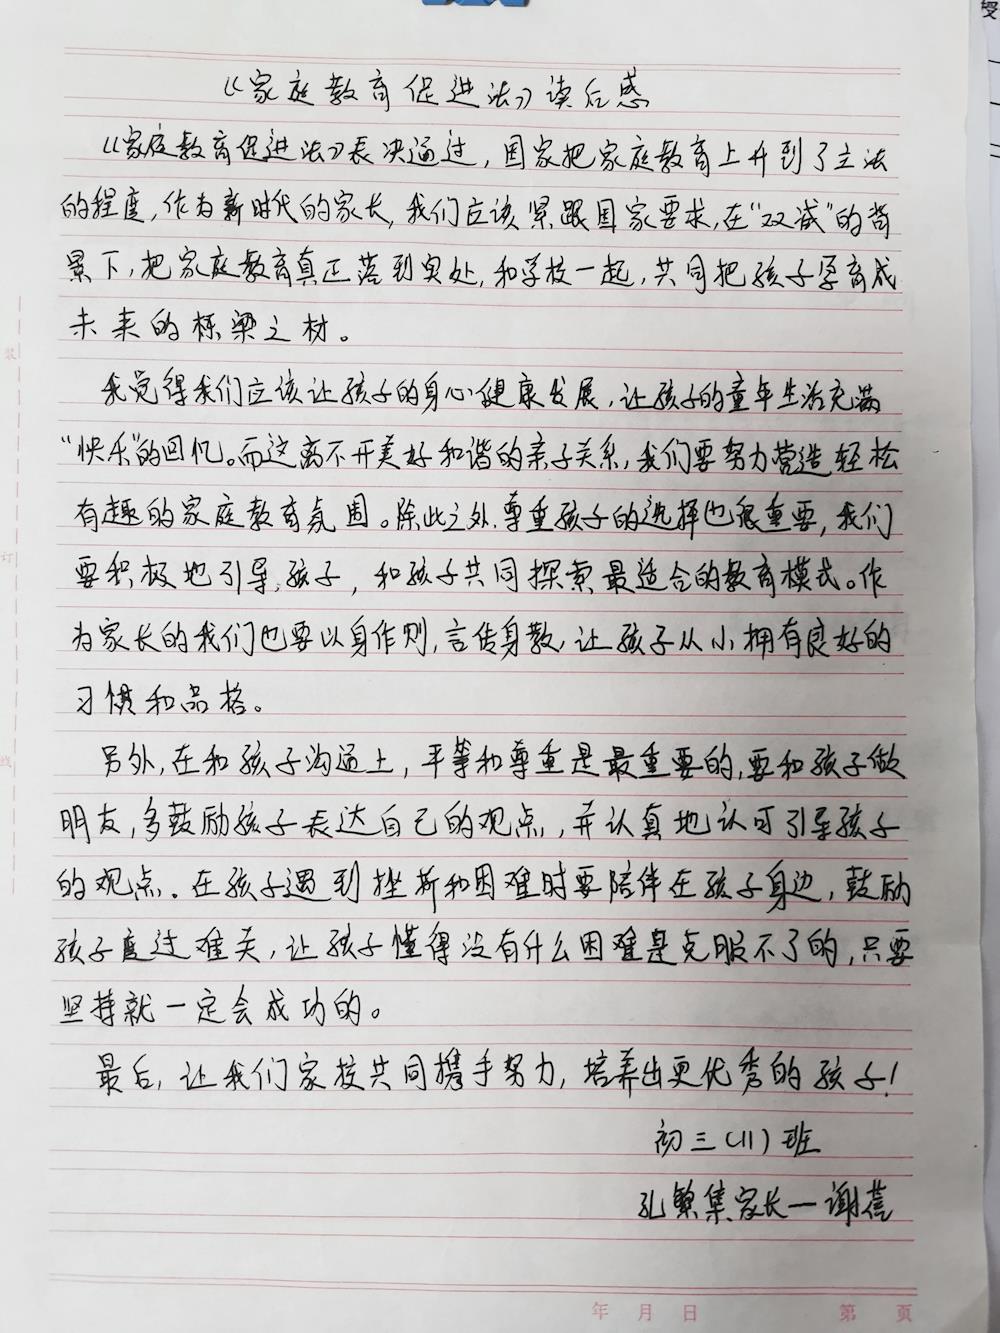 《家庭教育促进法》读后感
《家庭教育促进法》表决通过，国家把家庭教育上升到了立法
的程度，作为新时代的家长，我们应该紧跟国家要求，在“双减”的背
景下，把家庭教育真正落到实处，和学校一起，共同把孩子孕育成
未来的栋梁之材。
我觉得我们应该让孩子的身心健康发展，让孩子的童年生活充满
“快乐”的回忆。而这离不开美好和谐的亲子关系，我们要努力营造轻松
有趣的家庭教育氛围。除此之外，尊重孩子的选择也很重要，我们
要积极地引导孩子，和孩子共同探索最适合的教育模式。作
为家长的我们也要以身作则，言传身教，让孩子从小拥有良好的
习惯和品格。
另外，在和孩子沟通上，平等和尊重是最重要的，要和孩子做
朋友，多鼓励孩子表达自己的观点，并认真地认可引导孩子
的观点。在孩子遇到挫折和困难时要陪伴在孩子身边，鼓励
孩子度过难关，让孩子懂得没有什么困难是克服不了的，只要
坚持就一定会成功的。
最后，让我们家校共同携手努力，培养出更优秀的孩子！
初三(11)班
孔繁集家长一谢蓓
年 月 日 第 页
装
订
线